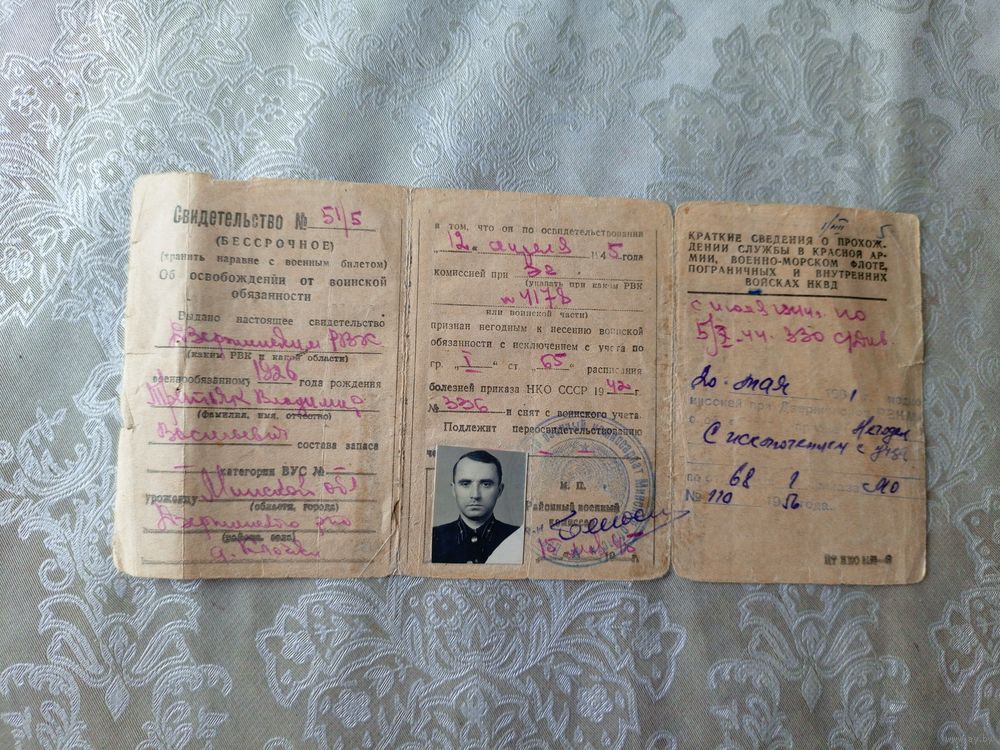 Свидетельство № 51/5
(БЕССРОЧНОЕ)
(хранить наравне с военным билетом)
Об освобождении от воинской
обязанности
Выдано настоящее свидетельство
Дзержинским РВК
(каким РВК и какой области)
военнообязанному 1926 года рождения
Третьяк Владимир
(фамилия, имя, отчество)
Васильевич состава запаса
I категории ВУС №
уроженцу Минской обл
(области, города)
Дзержинского
(района, села)
в том, что он по освидетельствовании
12 „ апреля 1945 года
комиссией при ЭГ
(указать при каком РВК
№ 4178
или воинской части)
признан негодным к несению воинской
обязанности с исключением с учета по
гр. „ I “ ст 65 расписания
болезней приказа НКО СССР 1942 г.
№ 336 и снят с воинского учета.
Подлежит переосвидетельствованию
М. П.
Районный военный
комиссар
15 мая 45
5
КРАТКИЕ СВЕДЕНИЯ О ПРОХОЖ-
ДЕНИИ СЛУЖБЫ В КРАСНОЙ АР-
МИИ, ВОЕННО-МОРСКОМ ФЛОТЕ,
ПОГРАНИЧНЫХ И ВНУТРЕННИХ
ВОЙСКАХ НКВД
по
330
20 мая
Негоден
С исключением с учета
68 I приказа МО
№ 110 1956 года.